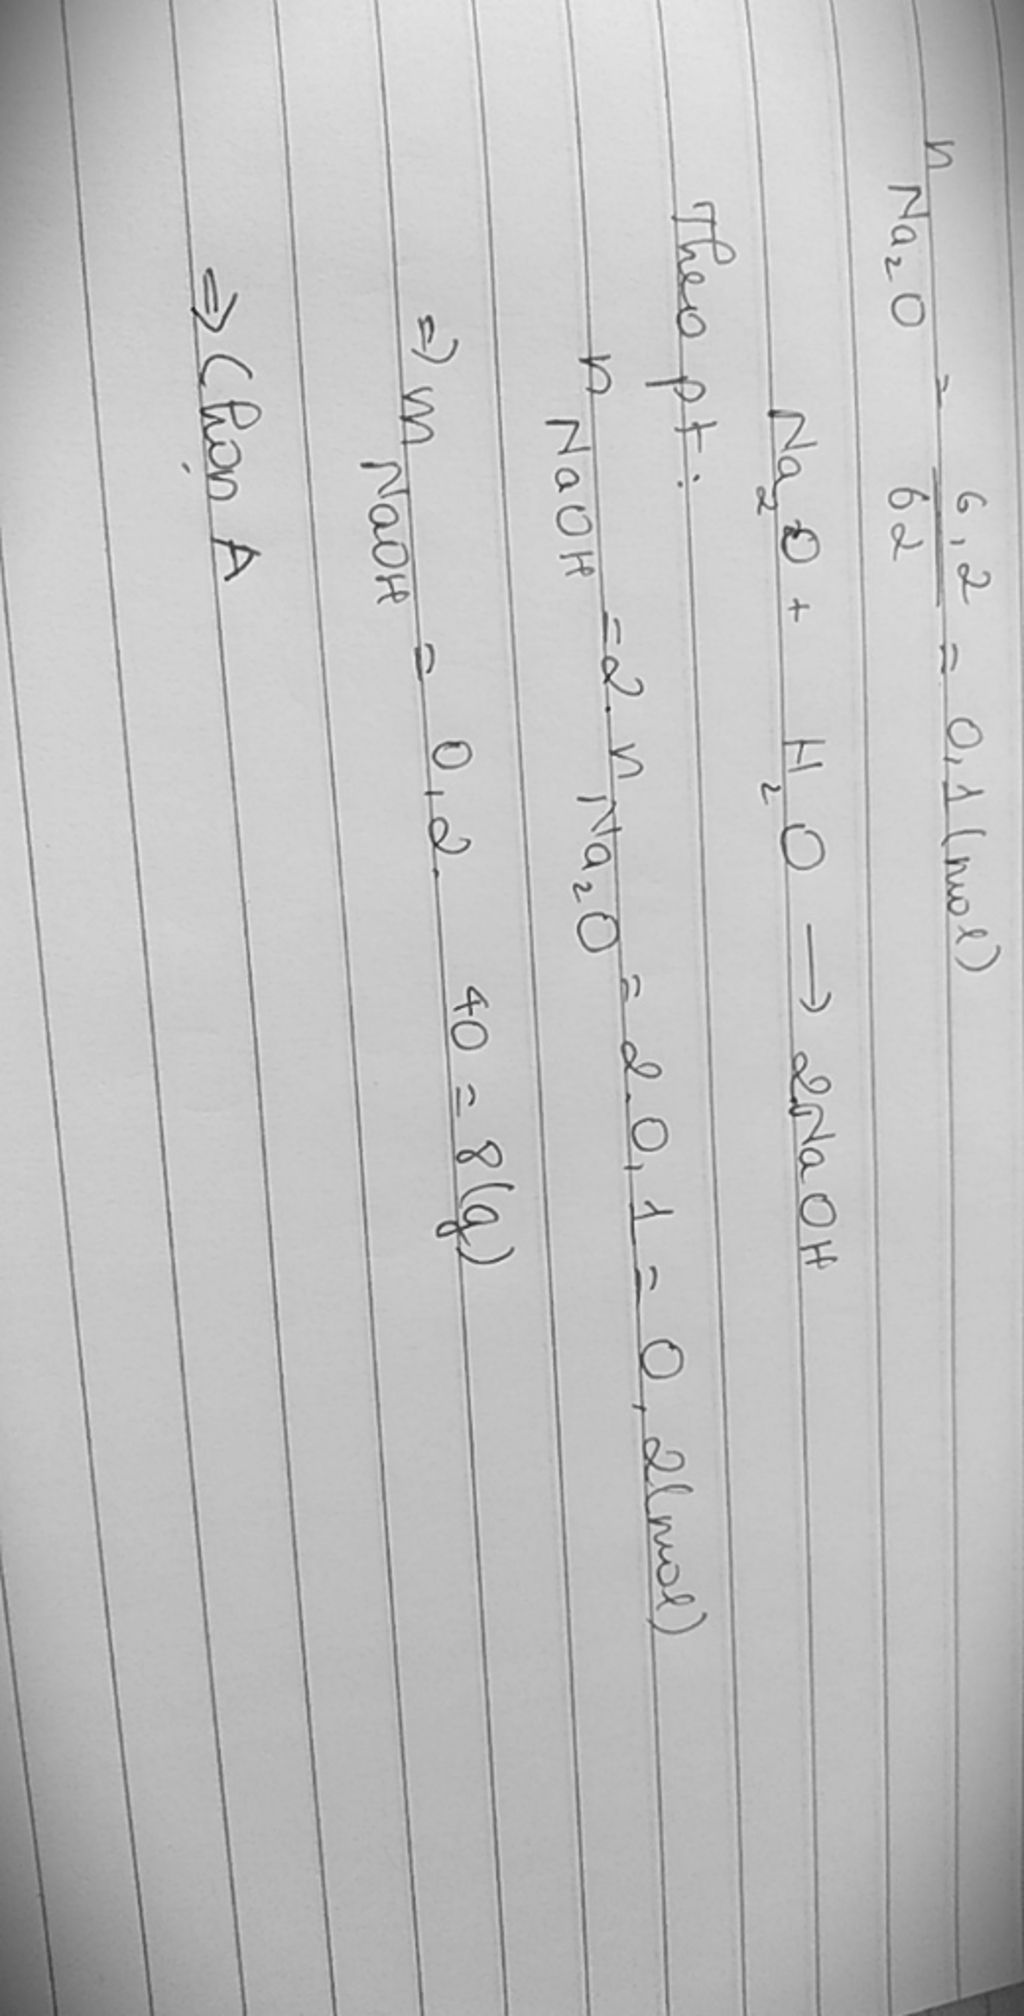 n Na₂O = 6,2 / 62 = 0,1 (mol)
Na₂O + H₂O → 2NaOH
Theo pt:
n NaOH = 2. n Na₂O = 2.0,1 = 0,2 (mol)
=) m NaOH = 0,2. 40 = 8 (g)
⇒ Chọn A